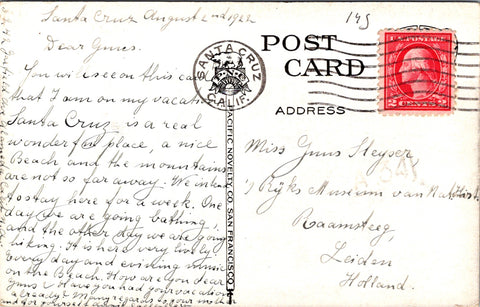 Santa Cruz August 2nd 1922
Dear Guus.
You will see on this car
that I am on my vacation
Santa Cruz is a real
wonderful place, a nice
Beach and the mountains
are not so far away. We intend
to stay here for a week. One
day we are going bathing,
and the other day we are going
hiking. It is here very lively
Every day and evening music
on the Beach. How are you dear
Guus? Have you had your vacation
already? My regards to your mother
145
POST CARD
ADDRESS
SANTA CRUZ
CALIF.
U.S. POSTAGE
2 CENTS 2
PACIFIC NOVELTY CO. SAN FRANCISCO
Miss Guus Sleyser
's Ryks Museum van Nat. Hist.
Raamsteeg,
Leiden
Holland.